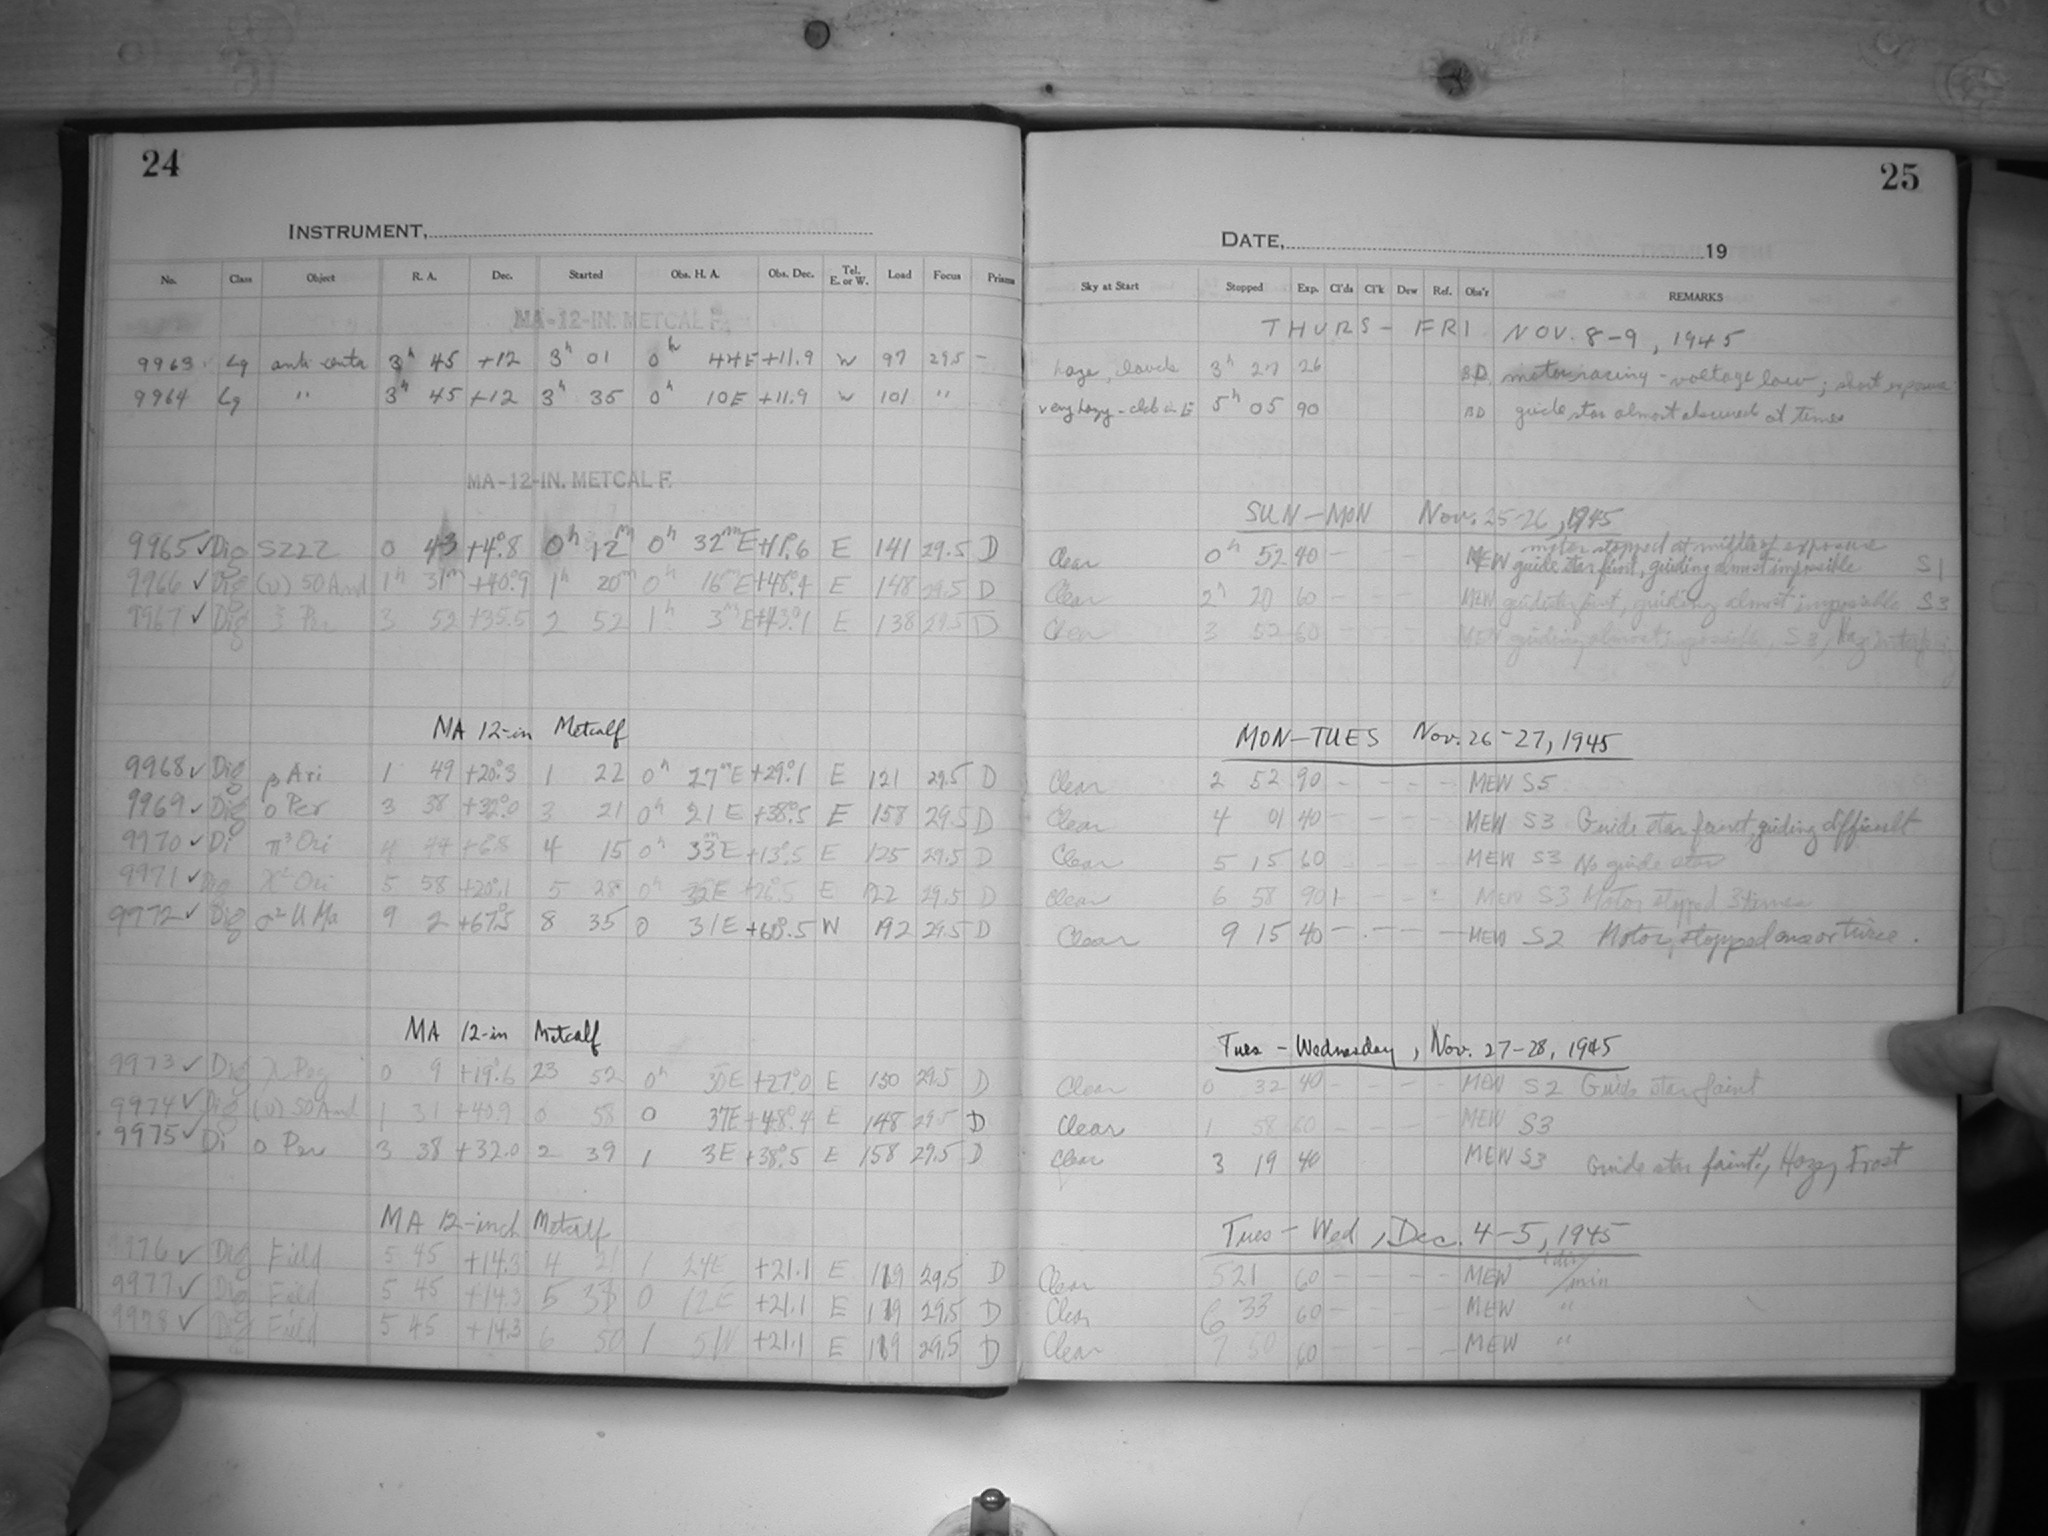 24
INSTRUMENT,
No. Class Object R. A. Dec. Started Obs. H. A. Obs. Dec. Tel. E. or W. Load Focus Prisms
MA-12-IN. METCALF.
9963 Lg anti centa 3h 45 +12 3h 01 0h 44E +11.9 W 97 29.5 -
9964 Lg " 3h 45 +12 3h 35 0h 10E +11.9 W 101 "
MA-12-IN. METCALF.
9965 ✓ Dig 0 43 +4.8 0h 12m 0h 32m E E 141 29.5 D
9966 ✓ Dig (υ) 50 And 1h 31m +40.9 1h 20m 0h 16m E +48.4 E 148 29.5 D
9967 ✓ Dig ξ Per 3 52 +35.5 2 52 1h 3m E +43.1 E 138 29.5 D
MA 12-in Metcalf
9968 ✓ Dig β Ari 1 49 +20.3 1 22 0h 27m E +29.1 E 121 29.5 D
9969 ✓ Dig o Per 3 38 +32.0 3 21 0h 21 E +38.5 E 158 29.5 D
9970 ✓ Di π³ Ori 4 +6.8 4 15 0h 33m E +13.5 E 125 29.5 D
9971 ✓ Dig χ² Ori 5 58 +20.1 5 28 0h 32E E 122 29.5 D
9972 ✓ Dig σ² U Ma 9 2 +67.5 8 35 0 31E W 192 29.5 D
MA 12-in Metcalf
9973 ✓ Dig χ Peg 0 9 +19.6 23 52 0h +27.0 E 130 29.5 D
9974 ✓ Dig (υ) 50 And 1 31 +40.9 0 58 0 37E +48.4 E 148 29.5 D
9975 ✓ Di o Per 3 38 +32.0 2 39 1 3E +38.5 E 158 29.5 D
MA 12-inch Metcalf
9976 ✓ Dig Field 5 45 +14.3 4 21 1 24E +21.1 E 119 29.5 D
9977 ✓ Dig Field 5 45 +14.3 5 33 0 12E +21.1 E 119 29.5 D
9978 ✓ Dig Field 5 45 +14.3 6 50 1 5W +21.1 E 119 29.5 D
25
DATE, 19
Sky at Start Stopped Exp. Cl'ds Cl'k Dew Ref. Obs'r REMARKS
THURS - FRI NOV. 8-9, 1945
haze, clouds 3h 27 26 BD motor racing - voltage low; short exposure
very hazy - clds in E 5h 05 90 BD guide star almost obscured at times
SUN-MON Nov. 25-26, 1945
motor stopped at middle of exposure
Clear 0h 52 40 - - - - MEW guide star faint, guiding almost impossible S1
Clear 2h 20 60 - - - - MEW guide star faint, guiding almost impossible S3
Clear 3 52 60 - - - - MEW guiding almost impossible, S3,
MON-TUES Nov. 26-27, 1945
Clear 2 52 90 - - - - MEW S5
Clear 4 01 40 - - - - MEW S3 Guide star faint, guiding difficult
Clear 5 15 60 - - - - MEW S3 No guide star
Clear 6 58 90 - - - MEW S3 Motor stopped 3 times
Clear 9 15 40 - - - - MEW S2 Motor stopped once or twice.
Tues - Wednesday, Nov. 27-28, 1945
Clear 0 32 40 - - - - MEW S2 Guide star faint
Clear 1 58 60 - - - - MEW S3
Clear 3 19 40 MEW S3 Guide star faint, Hazy, Frost
Tues - Wed, Dec. 4-5, 1945
Clear 5 21 60 - - - - MEW 1 div/min
Clear 6 33 60 - - - - MEW "
Clear 7 50 60 - - - - MEW "